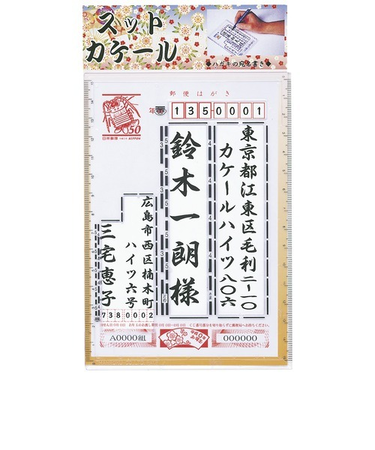 スット
カケール
ハガキの宛名書き
郵便はがき
50
日本郵便
1350001
東京都江東区毛利二-一〇
カケールハイツ八〇六
鈴木一朗様
広島市西区楠木町
ハイツ六号
三宅恵子
7380002
A0000組
000000